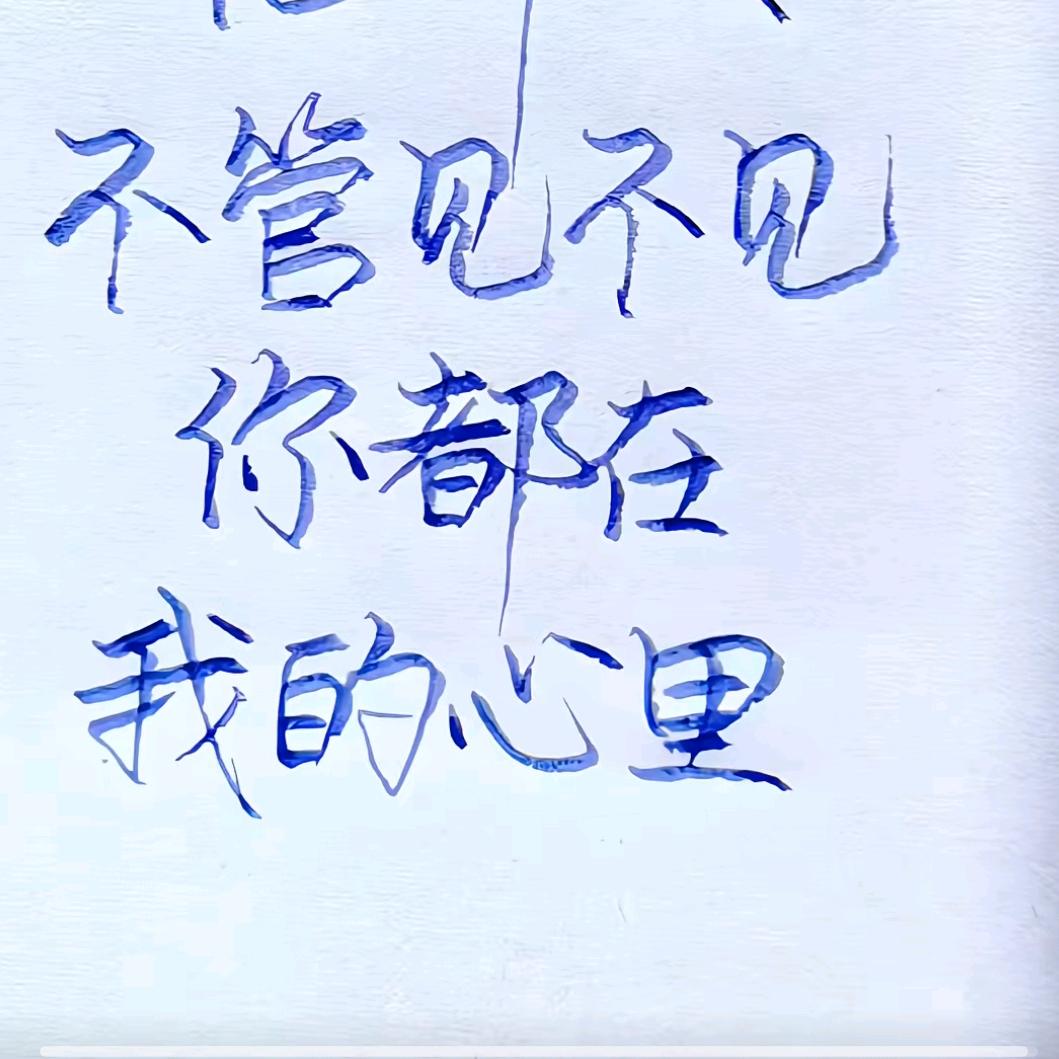 不管见不见
你都在
我的心里